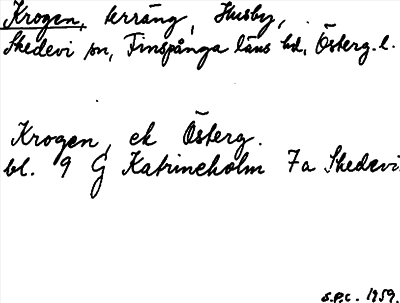 Krogen, terräng, Husby,
Skedevi sn, Finspånga läns hd, Österg. l.
Krogen, ek Österg.
bl. 9 G Katrineholm 7a Skedevi
S.P.C. 1959.